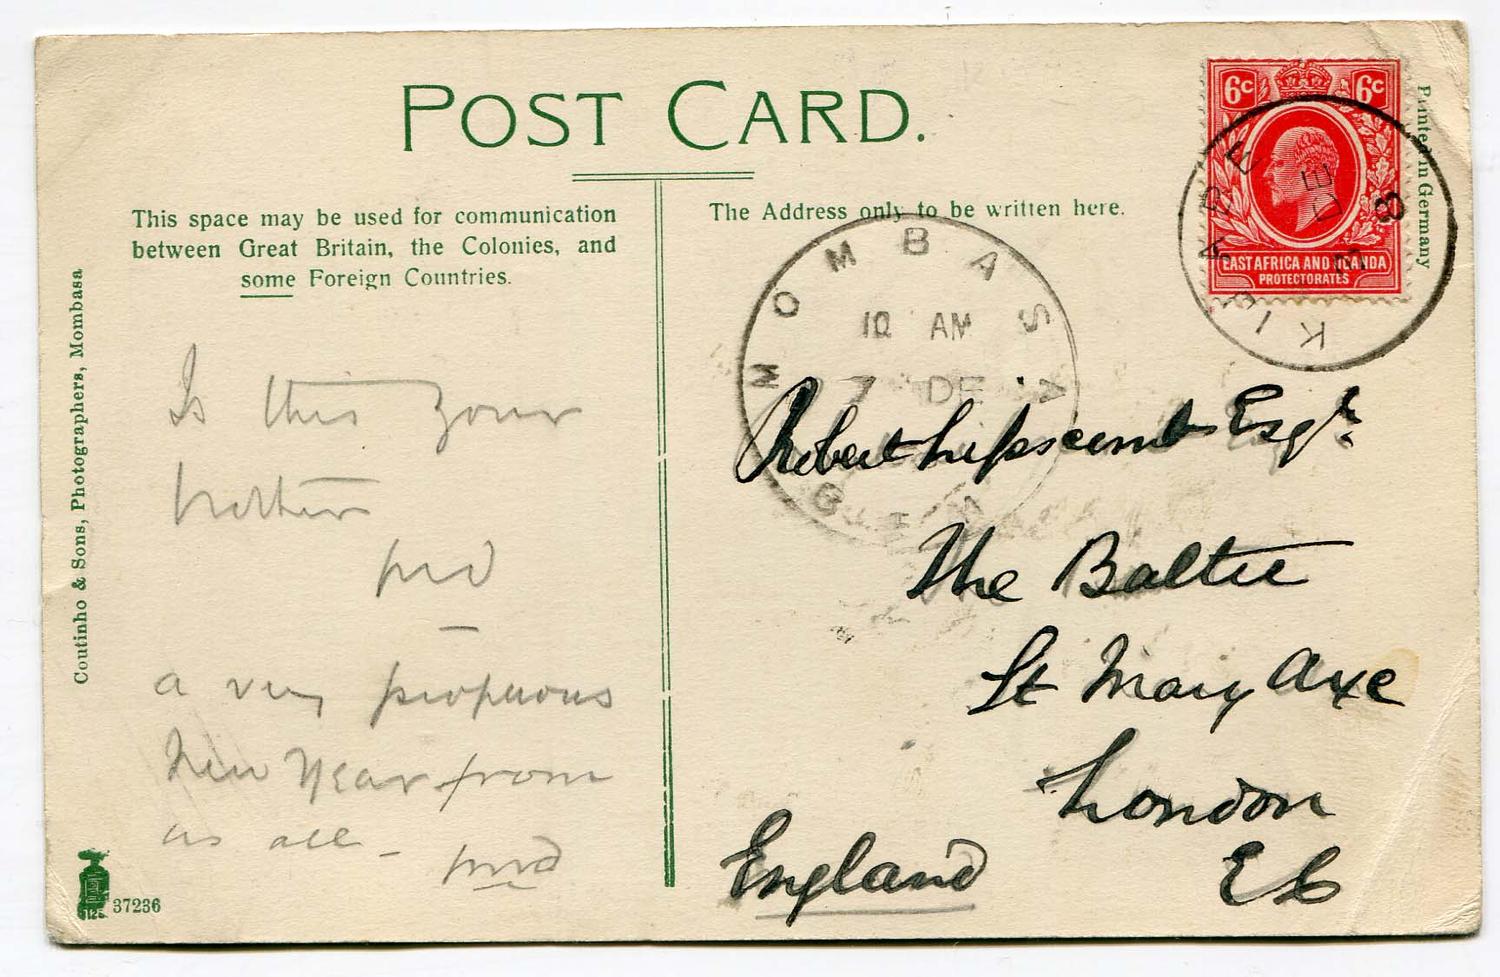 POST CARD.
This space may be used for communication
between Great Britain, the Colonies, and
some Foreign Countries.
The Address only to be written here.
6c 6c
EAST AFRICA AND UGANDA
PROTECTORATES
KIBIGORI
MOMBASA
10 AM
7 DE
Printed in Germany
Coutinho & Sons, Photographers, Mombasa
Is this your
brother
a very prosperous
New Year from
us all -
Robert Lipscomb Esqr.
The Baltic
St Mary Axe
London
E C
England
37236